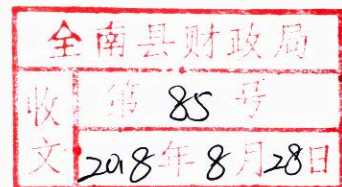 全南县财政局
收文
第85号
2018年8月28日